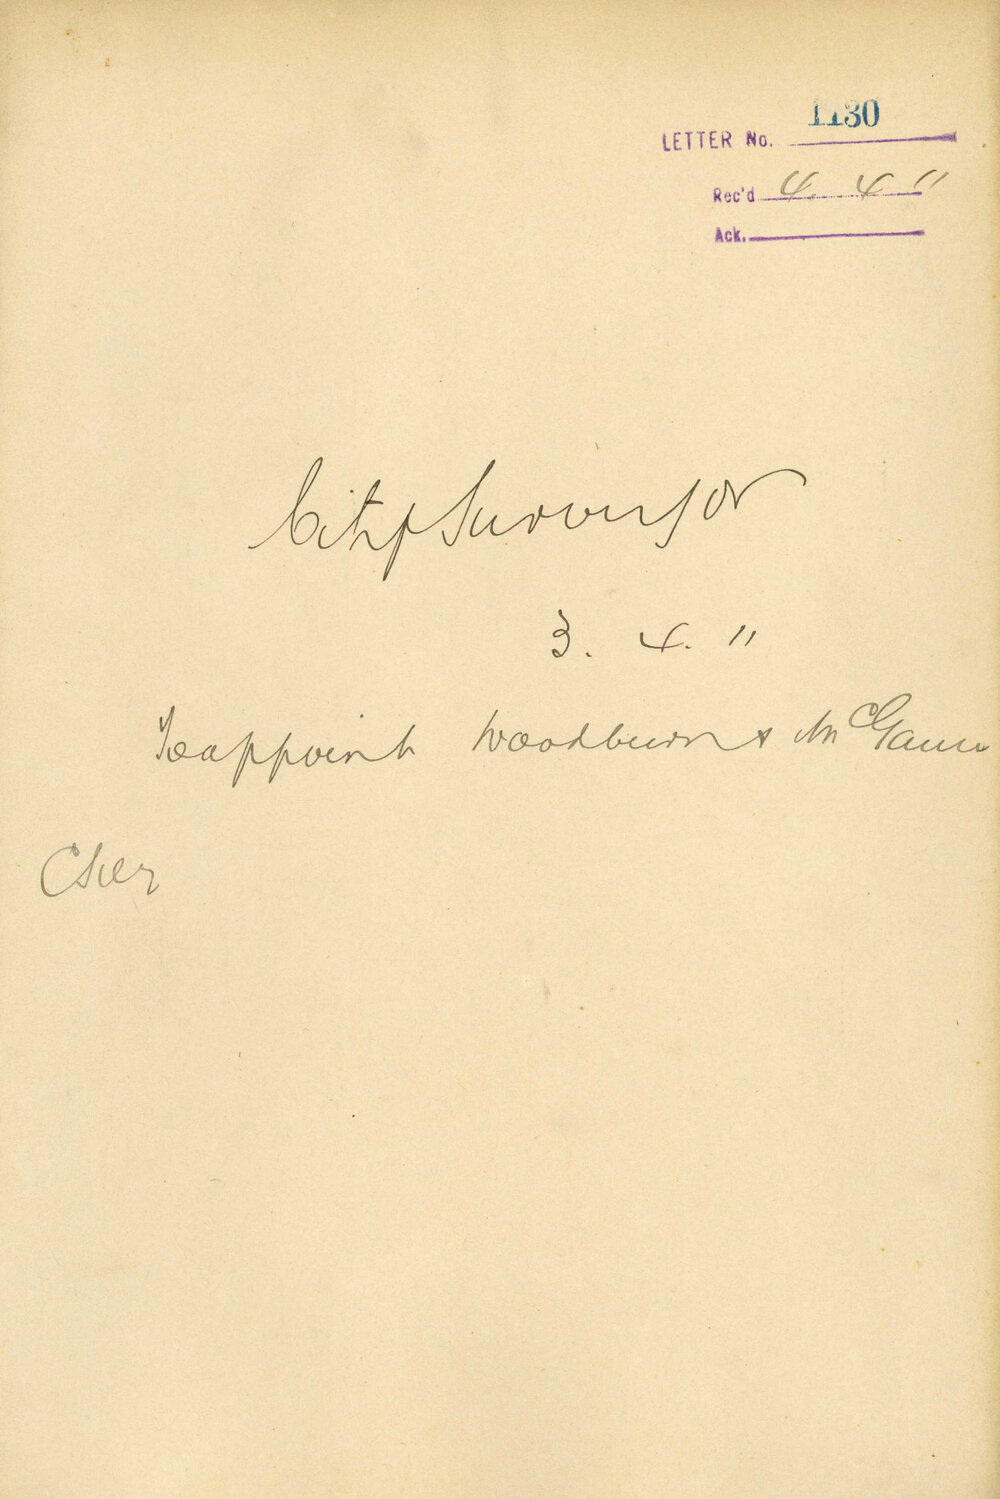 LETTER No. 1130
Rec'd 4. 4 11
Ack.
City Surveyor
3. 4. 11
Re appoint Woodburn & McGann